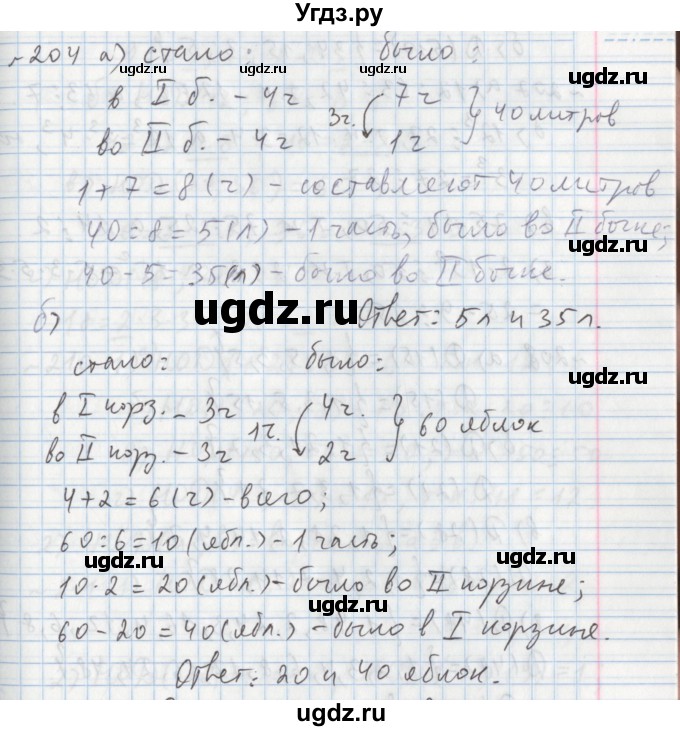 Угдз.ру
№204 а) стало: было:
www.gdz.ru
www.gdz.ru
в I б. – 4ч 7ч
3ч. 40 литров
во II б. – 4ч 1ч
1+7=8(ч) – составляют 40 литров
40:8=5(л) – 1 часть, было во II бочке;
40-5=35(л) – было во II бочке.
ugdz.ru
б) Ответ: 5л и 35л.
стало: было:
ugdz.ru
в I корз. – 3ч 4ч.
1ч. 60 яблок
во II корз. – 3ч 2ч
4+2=6(ч) – всего;
ugdz.ru
60:6=10(ябл.) – 1 часть;
10·2=20(ябл.) – было во II корзине;
ugdz.ru
60-20=40(ябл.) – было в I корзине.
Ответ: 20 и 40 яблок.
ugdz.ru
ugdz.ru